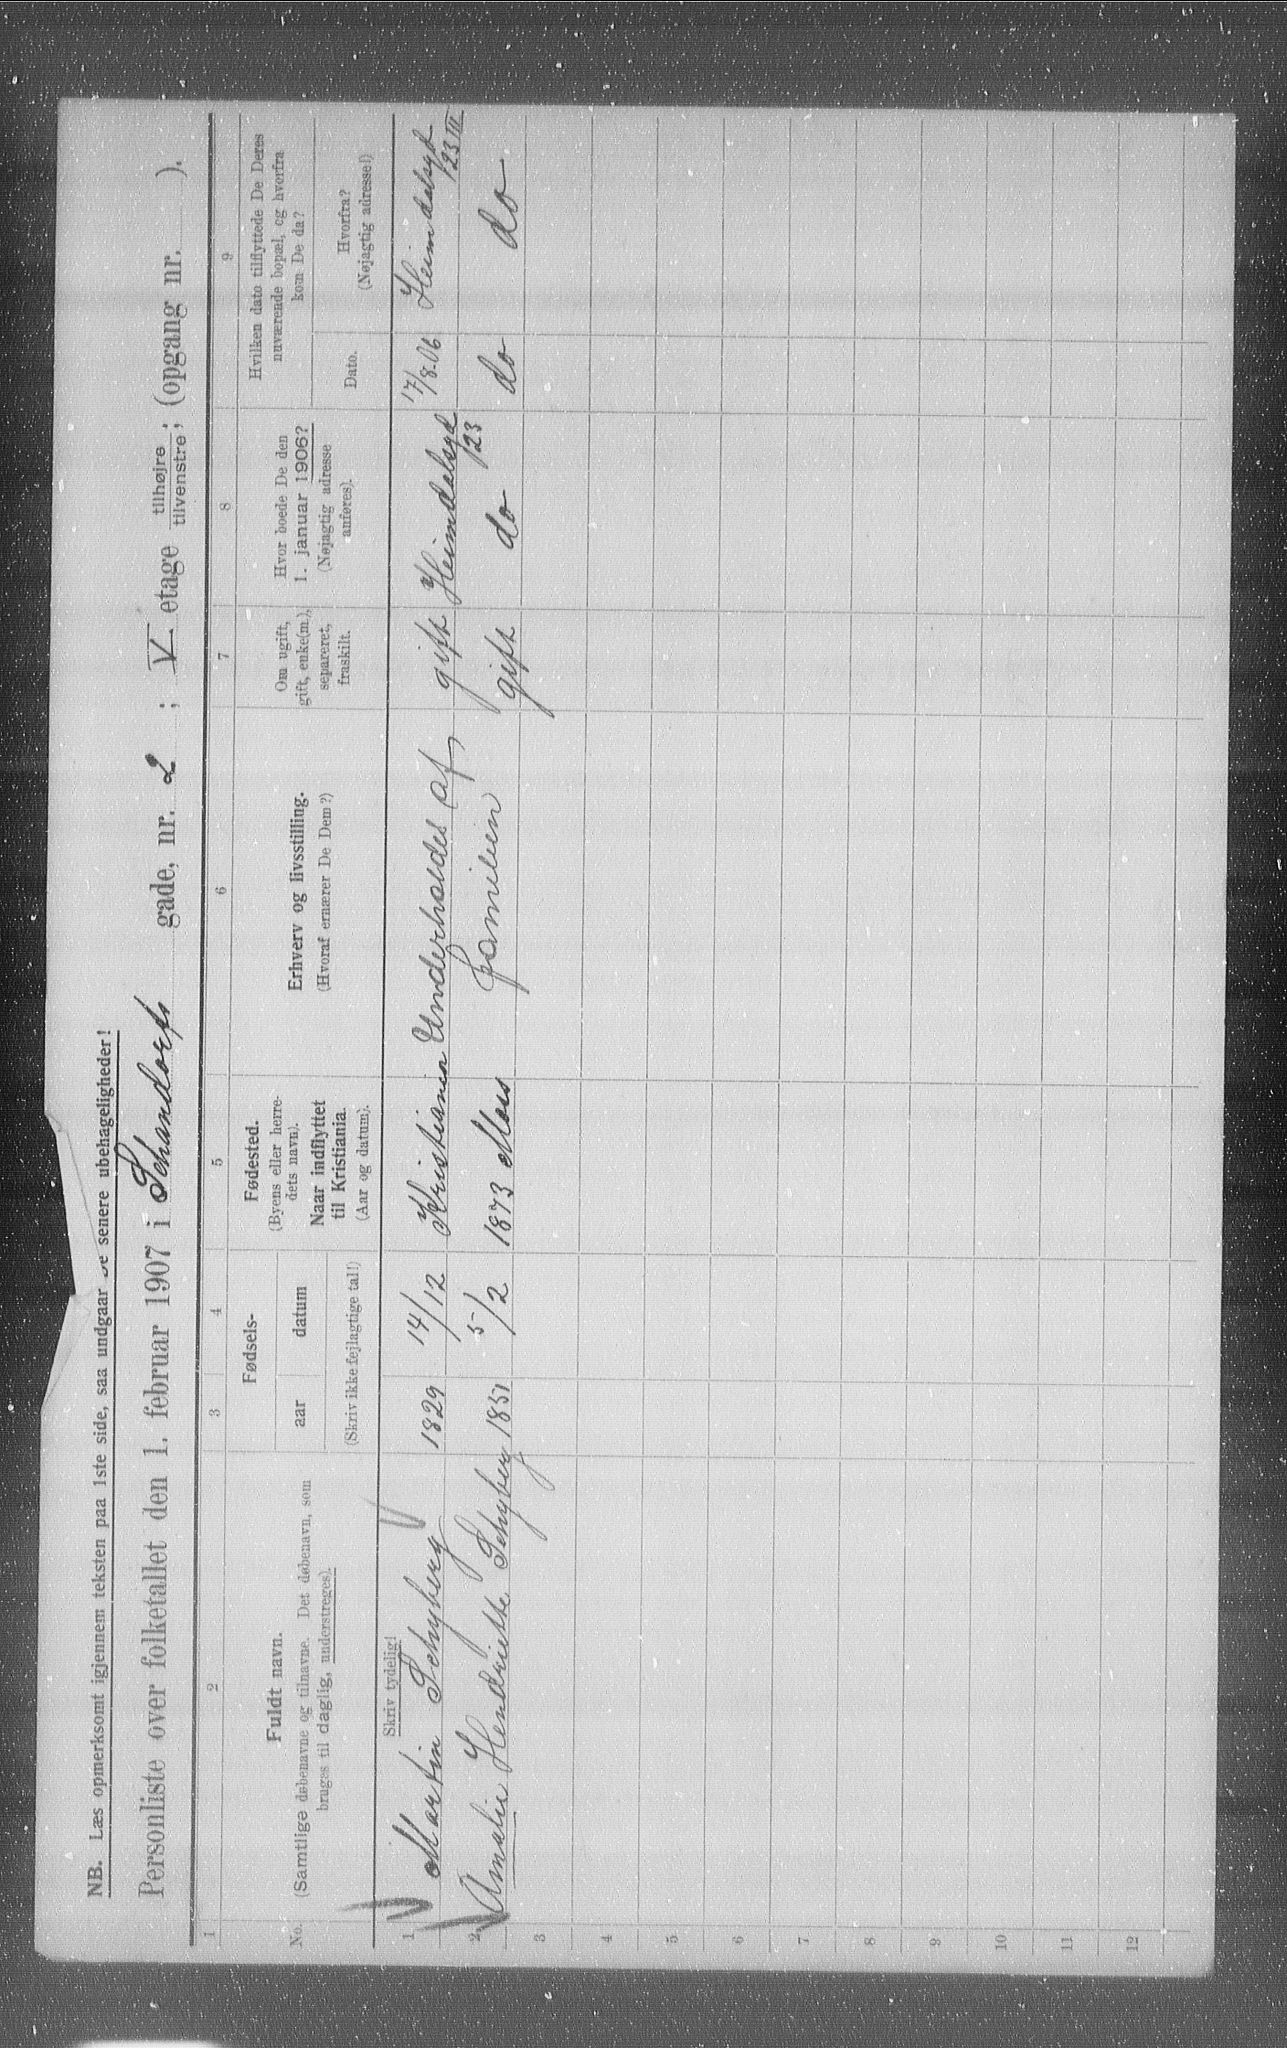 NB. Læs opmerksomt igjennem teksten paa 1ste side, saa undgaar De senere ubehageligheder!
Personliste over folketallet den 1. februar 1907 i Schandorfs gade, nr. 2 ; V. etage tilhøjre tilvenstre; (opgang nr. ).
1 2 3 4 5 6 7 8 9
No.
Fuldt navn.
(Samtlige døbenavne og tilnavne. Det døbenavn, som
bruges til daglig, understreges).
Fødsels-
aar datum
(Skriv ikke fejlagtige tal!)
Fødested.
(Byens eller herre-
dets navn).
Naar indflyttet
til Kristiania.
(Aar og datum).
Erhverv og livsstilling.
(Hvoraf ernærer De Dem?)
Om ugift,
gift, enke(m.),
separeret,
fraskilt.
Hvor boede De den
1. januar 1906?
(Nøjagtig adresse
anføres).
Hvilken dato tilflyttede De Deres
nuværende bopæl, og hvorfra
kom De da?
Dato.
Hvorfra?
(Nøjagtig adresse!)
Skriv tydelig!
1 Martin Schyberg 1829 14/12 Kristiania Underholdes af gift Heimdalsgd 23 17/8.06 Heimdalsgd 23 III
2 Amalie Hendriette Schyberg 1851 5/2 1873 Moss familien gift do do do
3
4
5
6
7
8
9
10
11
12